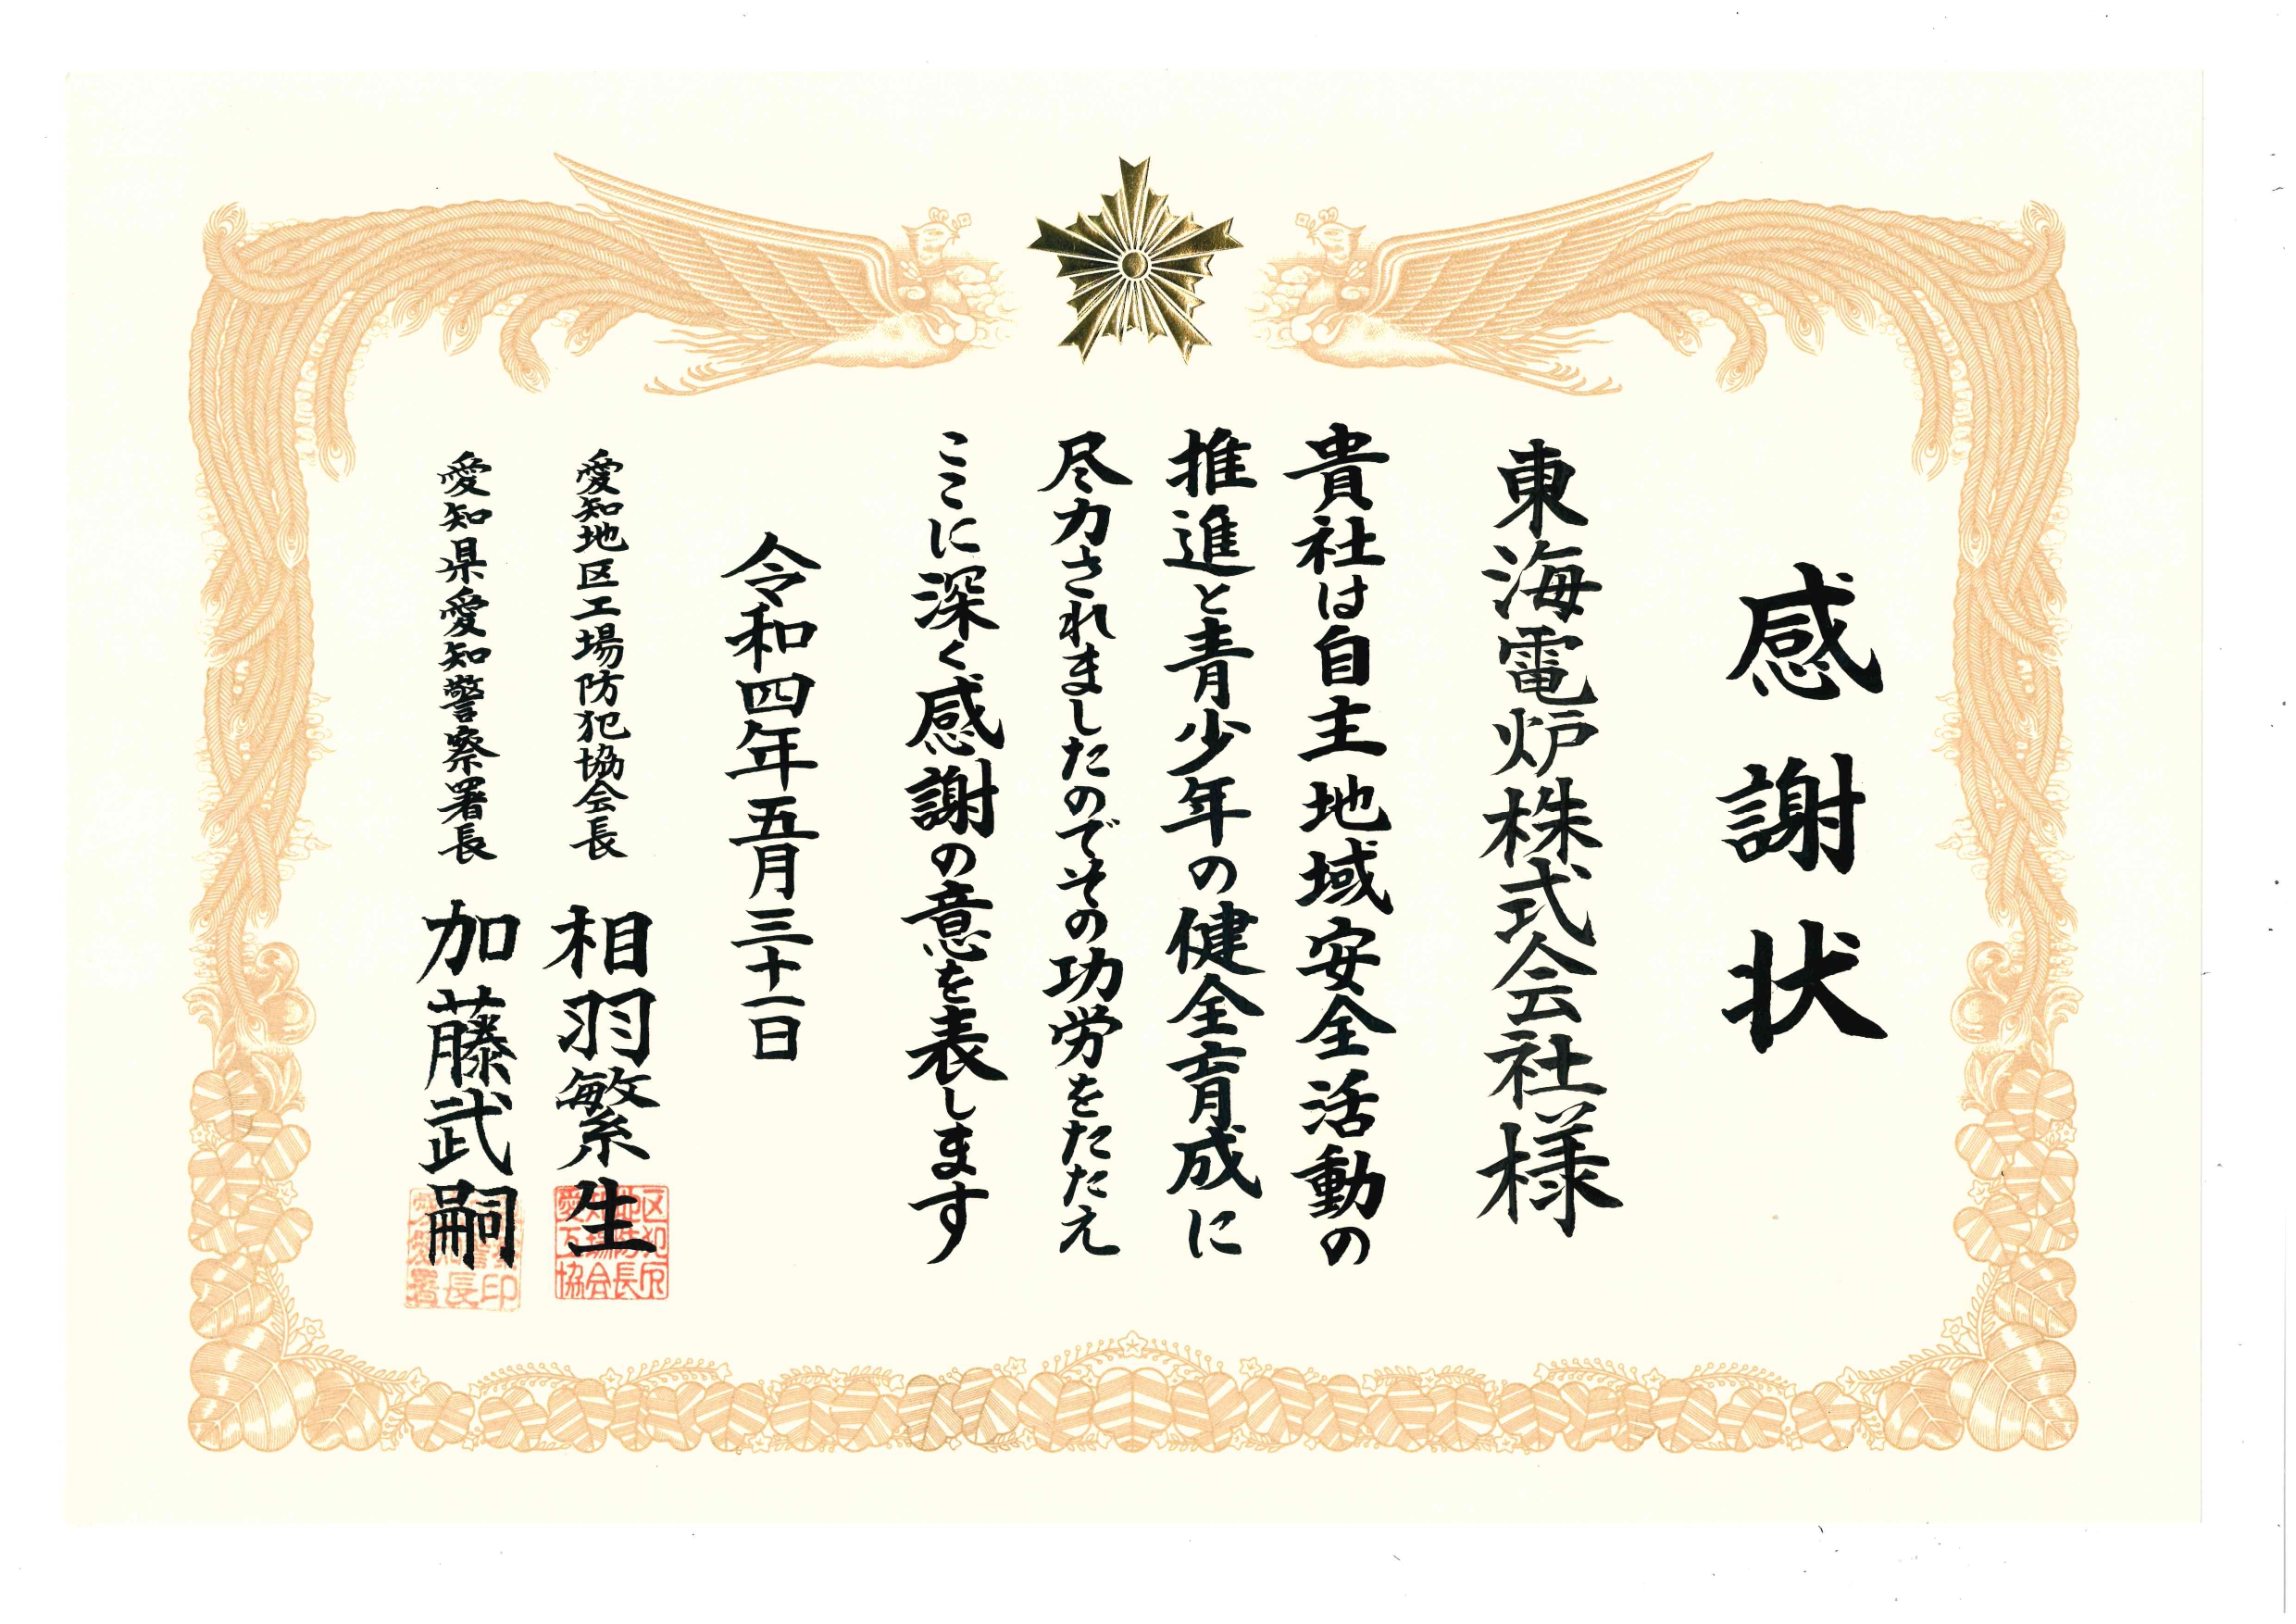 感謝状
東海電炉株式会社様
貴社は自主地域安全活動の
推進と青少年の健全育成に
尽力されましたのでその功労をたたえ
ここに深く感謝の意を表します
令和四年五月三十一日
愛知地区工場防犯協会長 相羽繁生
愛知県愛知警察署長 加藤武嗣